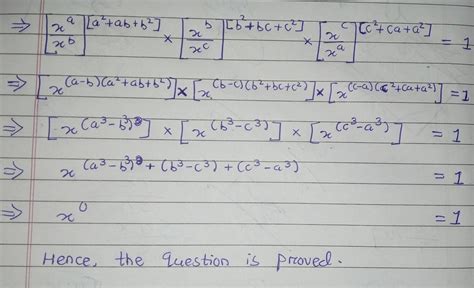 ⇒ [x^a/x^b]^[a²+ab+b²] × [x^b/x^c]^[b²+bc+c²] × [x^c/x^a]^[c²+ca+a²] = 1
⇒ [x^(a-b)(a²+ab+b²)] × [x^(b-c)(b²+bc+c²)] × [x^(c-a)(c²+ca+a²)] = 1
⇒ [x^(a³-b³)] × [x^(b³-c³)] × [x^(c³-a³)] = 1
⇒ x^(a³-b³)+(b³-c³)+(c³-a³) = 1
⇒ x^0 = 1
Hence, the question is proved.